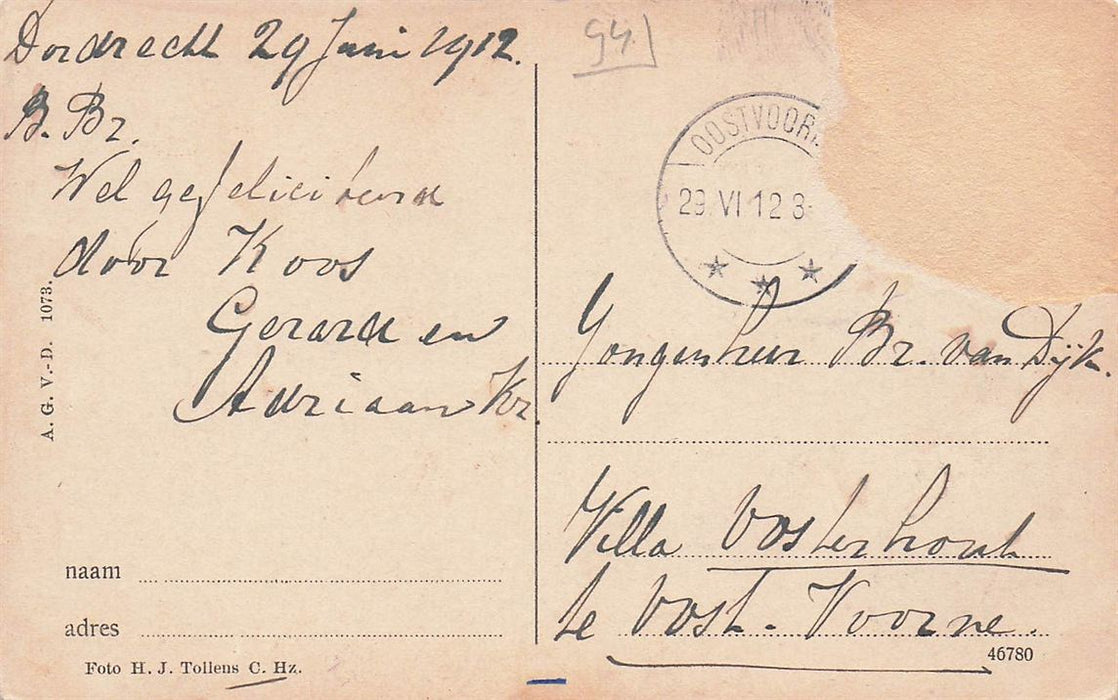 Dordrecht 29 Juni 1912.
B. Br.
Wel gefeliciteerd
door Koos
Gerard en
Adriaan Kr.
A. G. V.-D. 1073.
naam
adres
Foto H. J. Tollens C. Hz.
94
OOSTVOOR
29 VI 12 8-
Jongenheer Br. van Dijk.
Villa Oosterhout
te Oost-Voorne.
46780